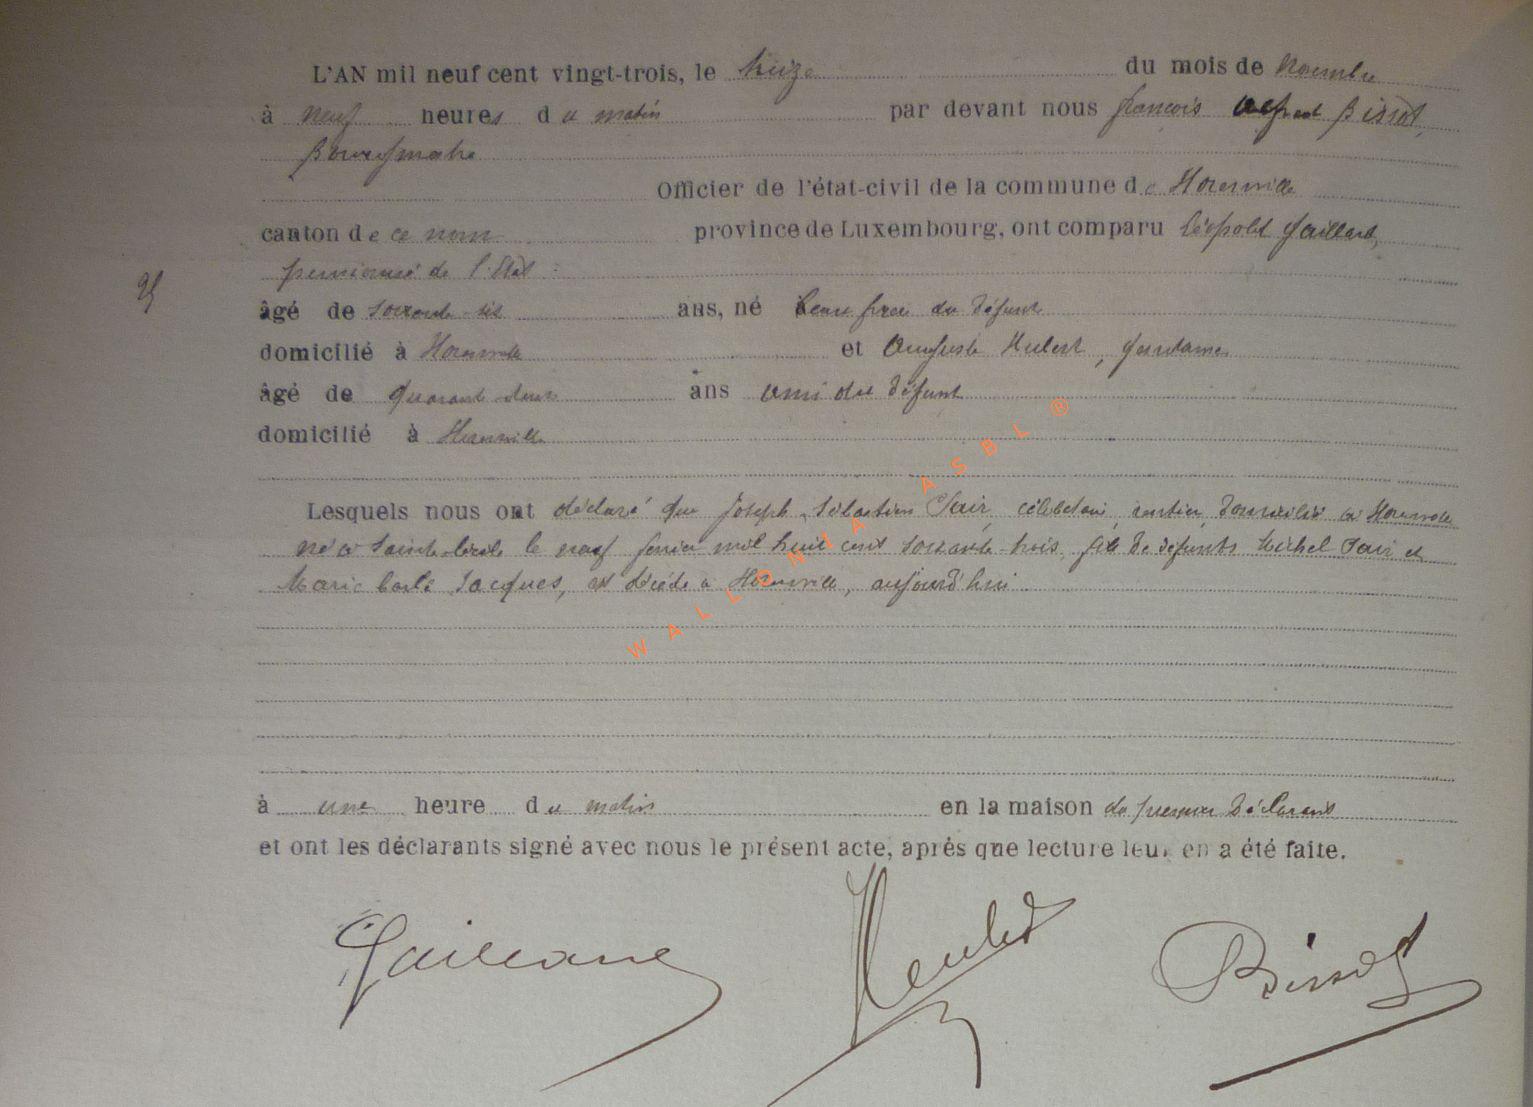 L'AN mil neuf cent vingt-trois, le treize du mois de Novembre
à neuf heures du matin par devant nous françois Bissot,
Bourgmestre
Officier de l'état-civil de la commune de Houvenville
canton de ce nom province de Luxembourg, ont comparu Léopold Gaillard,
pensionné de l'Etat
âgé de soixante six ans, né beau frère du défunt
domicilié à et Auguste Hubert, gendarme
âgé de quarante deux ans ami du défunt
domicilié à
Lesquels nous ont déclaré que Joseph Sébastien célibataire, rentier, domicilié à
né à Sainte-Cécile le neuf février mil huit cent soixante trois, fils de défunts Michel et
Marie Jacques, est décédé à aujourd'hui
WALLONIA ASBL ®
à une heure du matin en la maison du premier déclarant
et ont les déclarants signé avec nous le présent acte, après que lecture leur en a été faite.
Gaillard Hubert Bissot